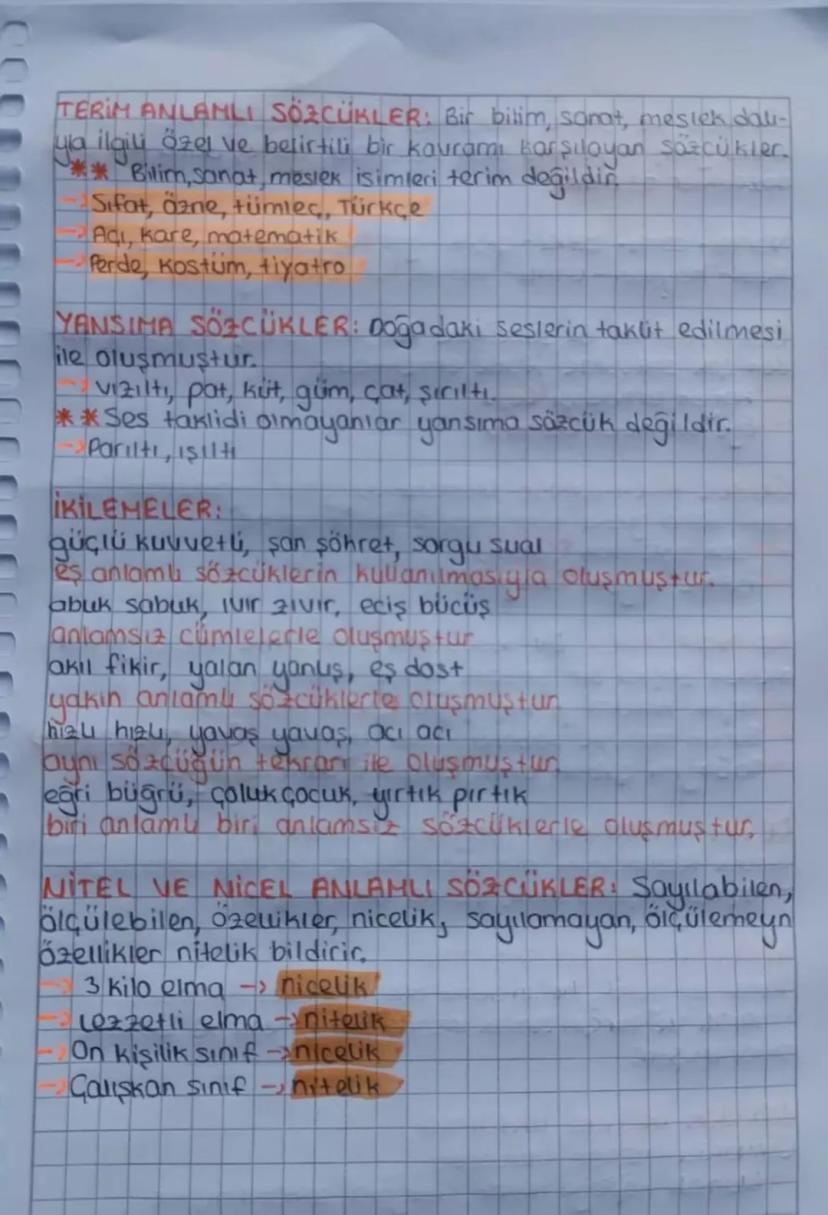 TERİM ANLAMLI SÖZCÜKLER: Bir bilim, sanat, meslek dalı-
yla ilgili özel ve belirtili bir kavramı karşılayan sözcükler.
** Bilim, sanat, meslek isimleri terim değildir.
→ Sıfat, özne, tümleç, Türkçe
→ Açı, kare, matematik
→ Perde, kostüm, tiyatro
YANSIMA SÖZCÜKLER: Doğadaki seslerin taklit edilmesi
ile oluşmuştur.
→ vızıltı, pat, küt, güm, çat, şırıltı.
** Ses taklidi olmayanlar yansıma sözcük değildir.
→ Parıltı, ışıltı
İKİLEMELER:
güçlü kuvvetli, şan şöhret, sorgu sual
eş anlamlı sözcüklerin kullanılmasıyla oluşmuştur.
abuk sabuk, ıvır zıvır, eciş bücüş
anlamsız cümlelerle oluşmuştur
akıl fikir, yalan yanlış, eş dost
yakın anlamlı sözcüklerle oluşmuştur
hızlı hızlı, yavaş yavaş, acı acı
aynı sözcüğün tekrarı ile oluşmuştur
eğri büğrü, çoluk çocuk, yırtık pırtık
biri anlamlı biri anlamsız sözcüklerle oluşmuştur.
NİTEL VE NİCEL ANLAMLI SÖZCÜKLER: Sayılabilen,
ölçülebilen, özellikler, nicelik, sayılamayan, ölçülemeyn
özellikler nitelik bildirir.
→ 3 kilo elma → nicelik
→ Lezzetli elma → nitelik
→ On kişilik sınıf → nicelik
→ Çalışkan sınıf → nitelik